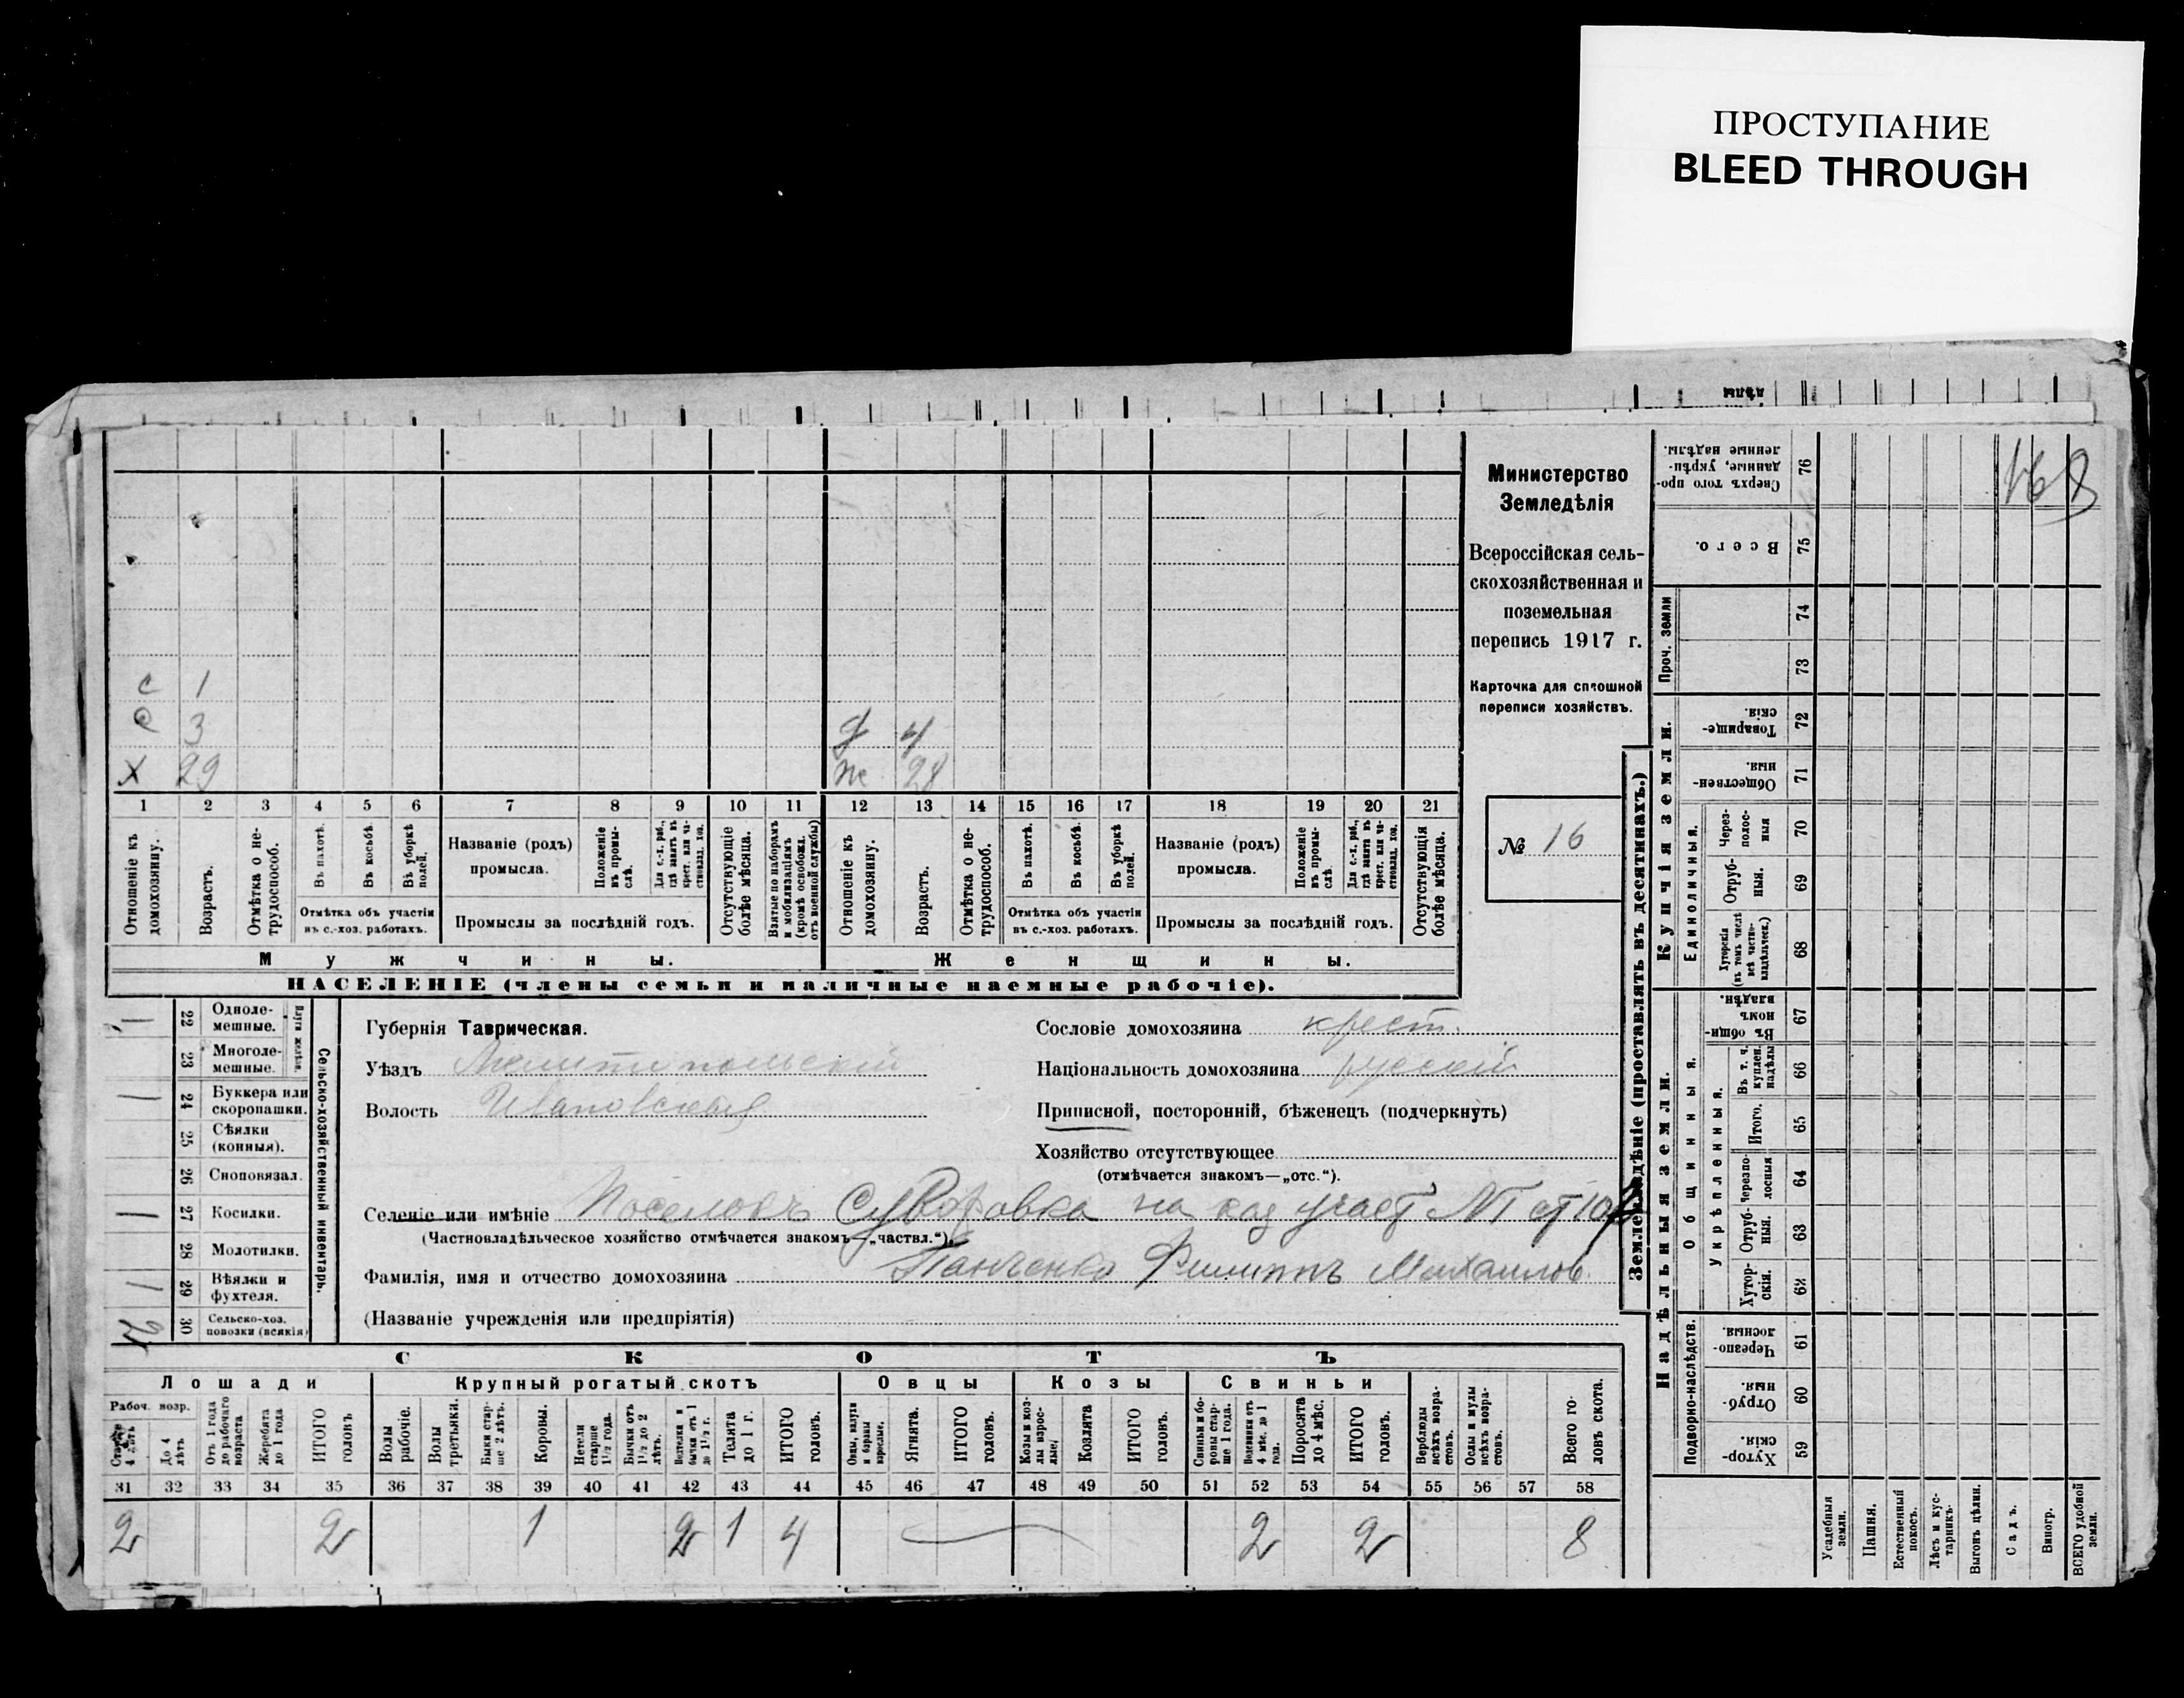 ПРОСТУПАНИЕ
BLEED THROUGH
дѣлы
с 1
с 3 д 4
х 29 ж 28
1 2 3 4 5 6 7 8 9 10 11 12 13 14 15 16 17 18 19 20 21
Отношеніе къ домохозяину.
Возрастъ.
Отмѣтка о не-трудоспособ.
Въ пахотѣ.
Въ косьбѣ.
Въ уборкѣ полей.
Отмѣтка объ участіи
въ с.-хоз. работахъ.
Названіе (родъ)
промысла.
Положеніе въ промы-слѣ.
Для с.-х. раб., гдѣ занятъ въ крест. или ча-стновлад. хоз.
Промыслы за послѣдній годъ.
Отсутствующіе болѣе мѣсяца.
Взятые по наборамъ и мобилизаціямъ (кромѣ освобожд. отъ военной службы)
Отношеніе къ домохозяину.
Возрастъ.
Отмѣтка о не-трудоспособ.
Въ пахотѣ.
Въ косьбѣ.
Въ уборкѣ полей.
Отмѣтка объ участіи
въ с.-хоз. работахъ.
Названіе (родъ)
промысла.
Положеніе въ промы-слѣ.
Для с.-х. раб., гдѣ занята въ крест. или ча-стновлад. хоз.
Промыслы за послѣдній годъ.
Отсутствующія болѣе мѣсяца.
Мужчины. Женщины.
НАСЕЛЕНІЕ (члены семьи и наличные наемные рабочіе).
Министерство
Земледѣлія
Всероссійская сель-
скохозяйственная и
поземельная
перепись 1917 г.
Карточка для сплошной
переписи хозяйствъ.
№ 16
1 22 Одноле-мешные.
23 Многоле-мешные.
Плуги желѣзн.
1 24 Буккера или скоропашки.
25 Сѣялки (конныя).
26 Сноповязал.
1 27 Косилки.
28 Молотилки.
1 29 Вѣялки и фухтеля.
30 Сельско-хоз. повозки (всякія)
Сельско-хозяйственный инвентарь.
Губернія Таврическая.
Уѣздъ Мелитопольскій
Волость Ивановская
Сословіе домохозяина крест.
Національность домохозяина русскій
Приписной, посторонній, бѣженецъ (подчеркнуть)
Хозяйство отсутствующее
(отмѣчается знакомъ—„отс.“).
Селеніе или имѣніе Поселокъ Суворовка на каз участ №1
(Частновладѣльческое хозяйство отмѣчается знакомъ—„частвл.“).
Фамилія, имя и отчество домохозяина Панченко Филиппъ Михаилов.
(Названіе учрежденія или предпріятія)
СКОТЪ
Лошади Крупный рогатый скотъ Овцы Козы Свиньи
Рабоч. возр.
Старше 4 лѣтъ
До 4 лѣтъ
Отъ 1 года до рабочаго возраста
Жеребята до 1 года
ИТОГО головъ
Волы рабочіе.
Волы третьяки.
Быки стар-ше 2 лѣтъ.
Коровы.
Нетели старше 1½ года.
Бычки отъ 1½ до 2 лѣтъ.
Нетелки и бычки отъ 1 до 1½ г.
Телята до 1 г.
ИТОГО головъ.
Овцы, валухи и бараны взрослые.
Ягнята.
ИТОГО головъ.
Козы и коз-лы взрос-лые
Козлята
ИТОГО головъ.
Свиньи и бо-ровы стар-ше 1 года.
Подсвинки отъ 4 мѣс. до 1 года.
Поросята до 4 мѣс.
ИТОГО головъ.
Верблюды всѣхъ возра-стовъ.
Ослы и мулы всѣхъ возра-стовъ.
Всего го-ловъ скота.
31 32 33 34 35 36 37 38 39 40 41 42 43 44 45 46 47 48 49 50 51 52 53 54 55 56 57 58
2 2 1 2 1 4 2 2 8
Землевладѣніе (проставлять въ десятинахъ.)
Сверхъ того про-данные, укрѣп-ленные надѣлы. 76
Всего. 75
Проч. земли 74 73
Купчія земли.
Товарище-скія. 72
Обществен-ныя. 71
Единоличныя.
Через-полос-ныя 70
Отруб-ныя. 69
Хуторскія (въ томъ числѣ всѣ частно-владѣльческ.) 68
Надѣльныя земли.
Общинныя.
Въ общин-номъ владѣн. 67
Укрѣпленныя.
Въ т. ч. куплен. надѣлы 66
Итого. 65
Черезпо-лосныя 64
Отруб-ныя. 63
Хутор-скія. 62
Подворно-наслѣдств.
Черезпо-лосныя 61
Отруб-ныя. 60
Хутор-скія. 59
Усадебныя земли.
Пашня.
Естественный покосъ.
Лѣсъ и кус-тарникъ.
Выгонъ цѣлин.
Садъ.
Виногр.
ВСЕГО удобной земли.